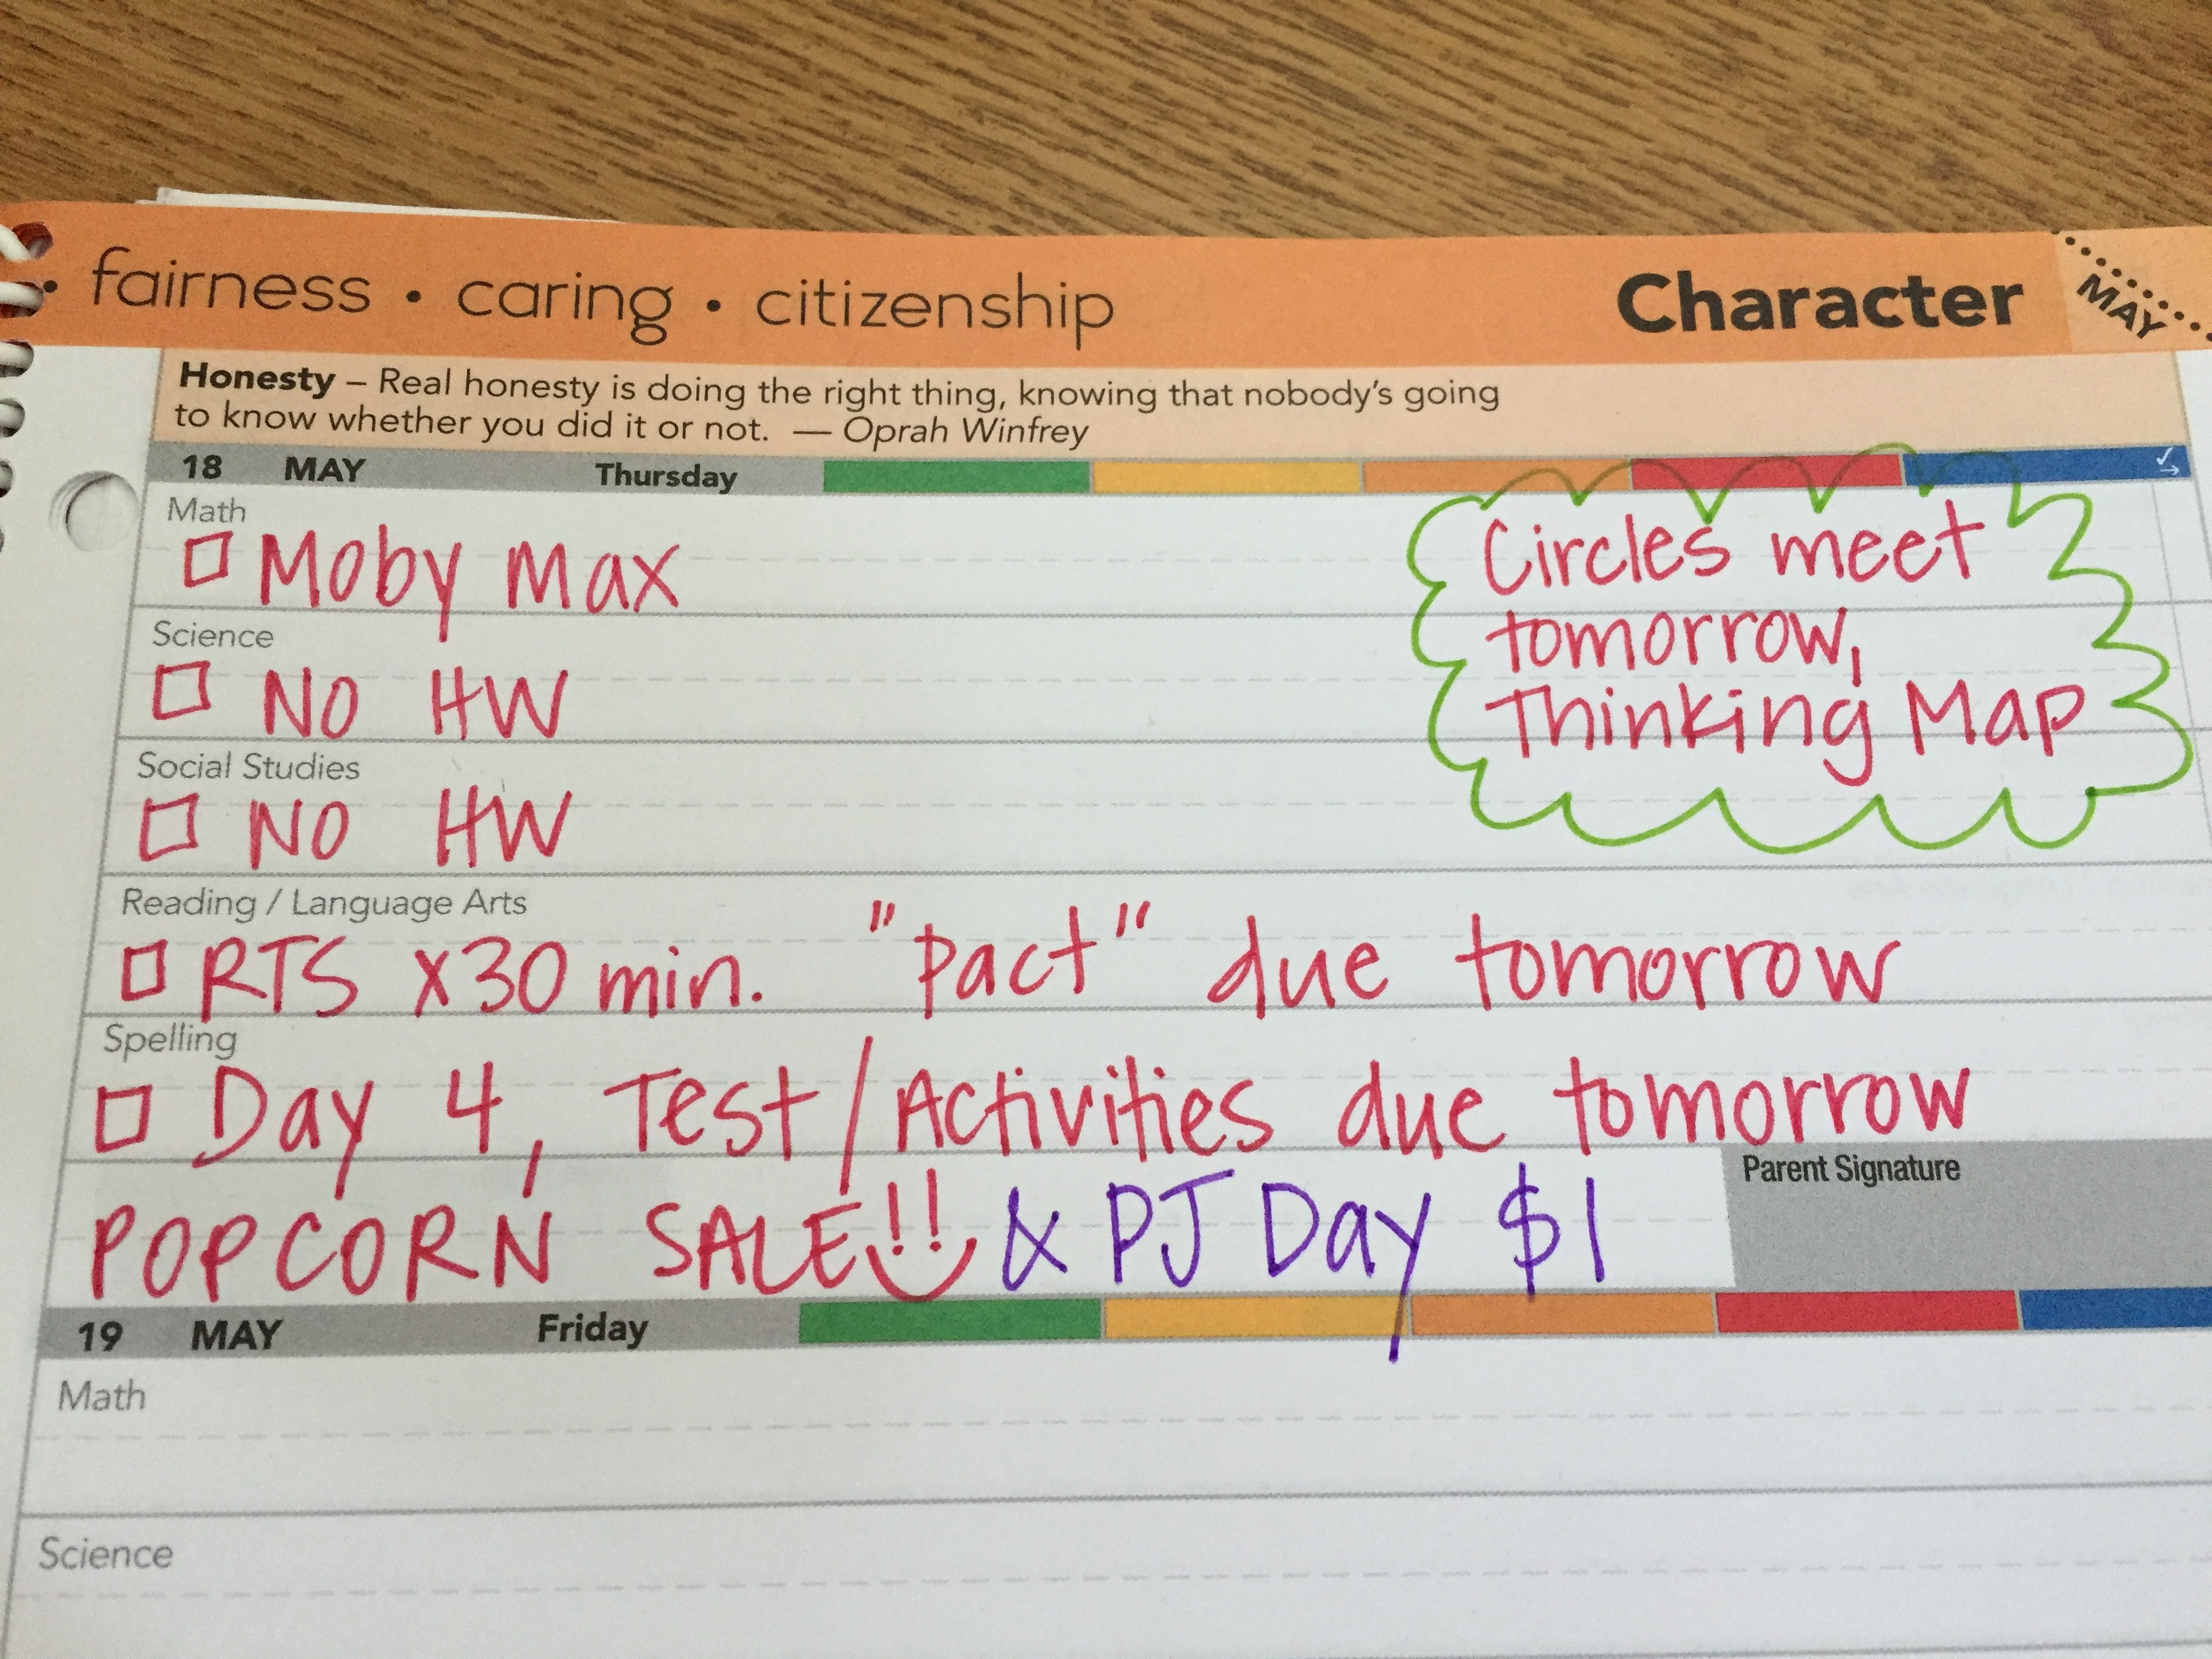 • fairness • caring • citizenship Character MAY
Honesty – Real honesty is doing the right thing, knowing that nobody's going
to know whether you did it or not. — Oprah Winfrey
18 MAY Thursday
Math
Moby Max
Circles meet
tomorrow,
Thinking Map
Science
No HW
Social Studies
No HW
Reading / Language Arts
RTS x30 min. "Pact" due tomorrow
Spelling
Day 4, Test/Activities due tomorrow
Parent Signature
POPCORN SALE!! & PJ Day $1
19 MAY Friday
Math
Science